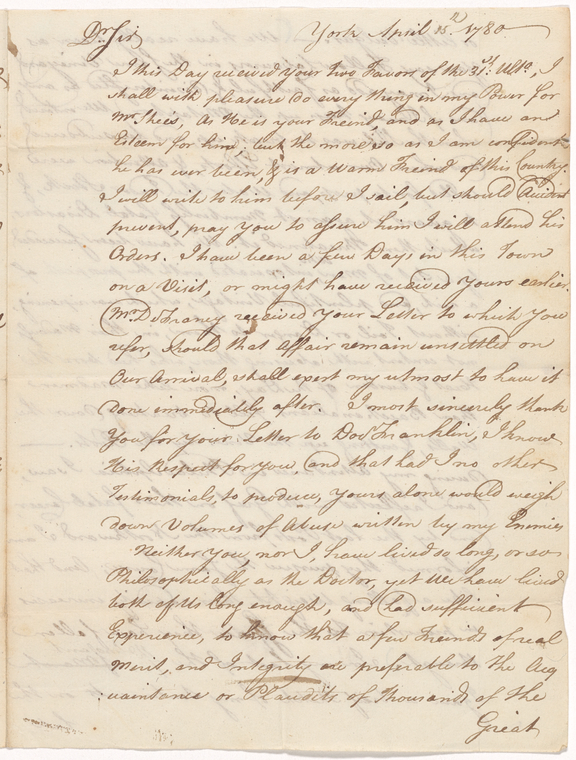 Dr Sir
York April 15th 1780
I this Day received your two Favors of the 31st Ulto, I
shall with pleasure do every thing in my Power for
Mr Shee, As He is your Freind, and as I have an
Esteem for him; but the more so as I am confident
he has ever been & is a Warm Freind of this Country.
I will write to him before I sail, but should Accident
prevent, pray you to assure him I will attend his
Orders. I have been a few Days in this Town
on a Visit, or might have received Yours earlier.
Mr De Francy received Your Letter to which You
refer, should that Affair remain unsettled on
Our Arrival, shall exert my utmost to have it
done immediately after. I most sincerely thank
You for your Letter to Docr Franklin, I know
His Respect for you, and that had I no other
Testimonials, to produce, Yours alone would weigh
down Volumes of Abuse written by my Enemies
Neither You, nor I have lived so long, or so
Philosophically as the Doctor, yet We have lived
both of Us long enough, and had sufficient
Experience, to know that a few Freinds of real
Merit, and Integrity are preferable to the Acq
uaintance or Plaudits of Thousands of the
Great